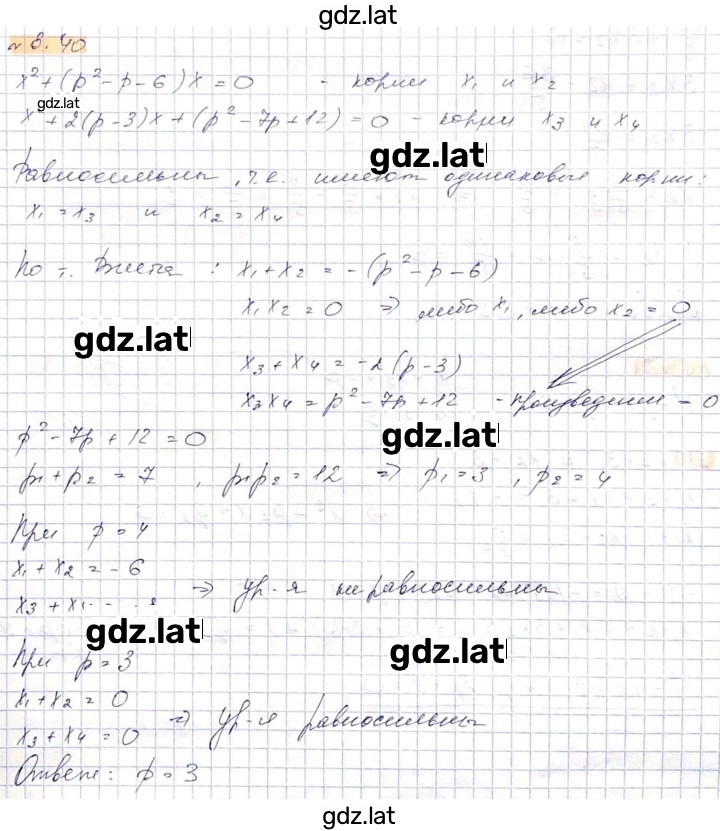 gdz.lat
№ 8.40
x² + (p² - p - 6)x = 0 - корни x₁ и x₂
gdz.lat
x² + 2(p-3)x + (p² - 7p + 12) = 0 - корни x₃ и x₄
gdz.lat
Равносильны, т.е. имеют одинаковые корни:
x₁ = x₃ и x₂ = x₄
По т. Виета: x₁ + x₂ = -(p² - p - 6)
x₁x₂ = 0 => либо x₁, либо x₂ = 0
gdz.lat
x₃ + x₄ = -2(p-3)
x₃x₄ = p² - 7p + 12 - произведение = 0
gdz.lat
p² - 7p + 12 = 0
p₁ + p₂ = 7, p₁p₂ = 12 => p₁ = 3, p₂ = 4
При p = 4
x₁ + x₂ = -6
x₃ + x₄ => ур-я не равносильны
gdz.lat
gdz.lat
При p = 3
x₁ + x₂ = 0
x₃ + x₄ = 0 => ур-я равносильны
Ответ: p = 3
gdz.lat